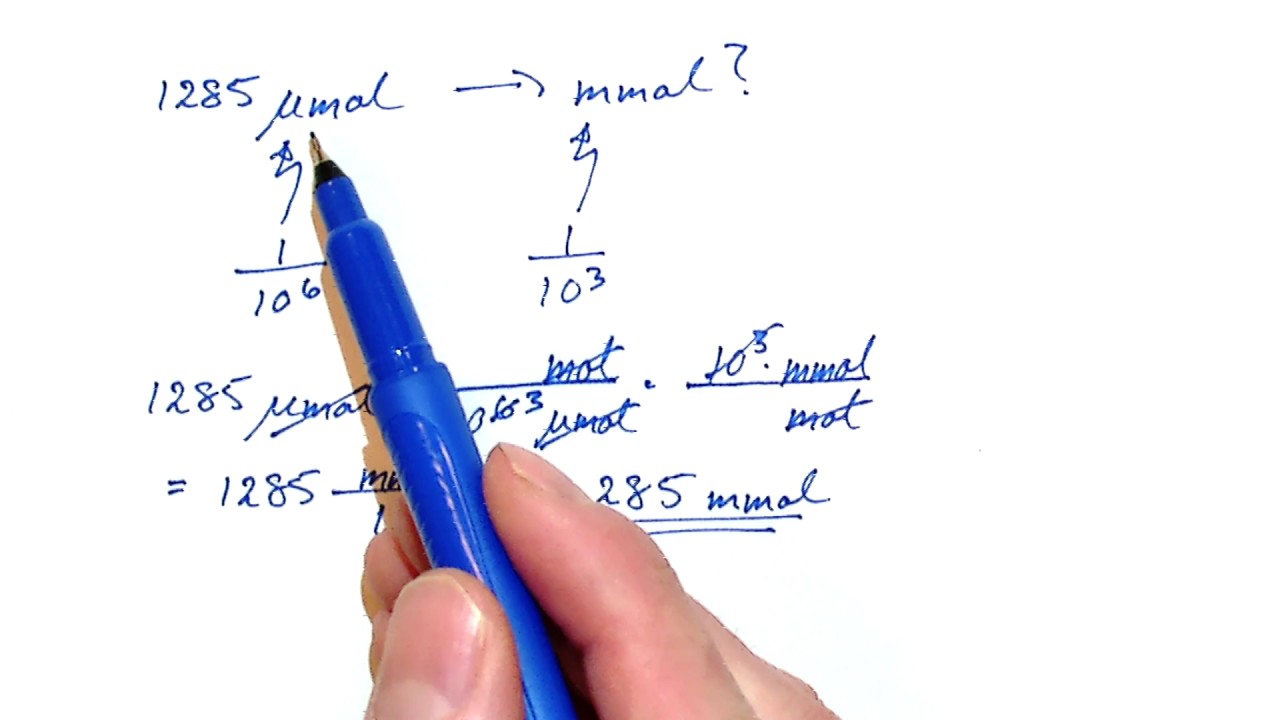 1285 μmol → mmol?
1 1
10⁶ 10³
1285 μmol mol · 10³ · mmol
μmol mol
= 1285 285 mmol